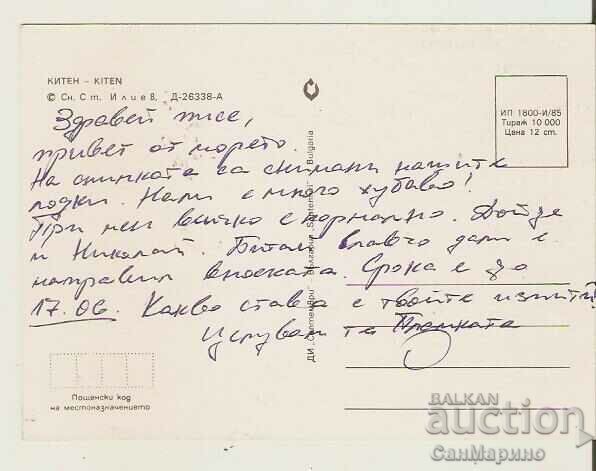 КИТЕН – KITEN
© Сн. Ст. Илиев, Д-26338-А
ИП 1800-И/85
Тираж 10 000
Цена 12 ст.
Здравей
привет от морето.
На снимката са снимани нашите
лодки. Нали е много хубаво!
При мен всичко е нормално. Дойде
и Николай. Питай Славчо дали е
направил вноската. Срока е до
17.06. Какво става с твоите изпити?
Целувам те
ДИ „Септември" - България „Septemvri" - Bulgaria
Пощенски код
на местоназначението
BALKAN
auction
СанМарино